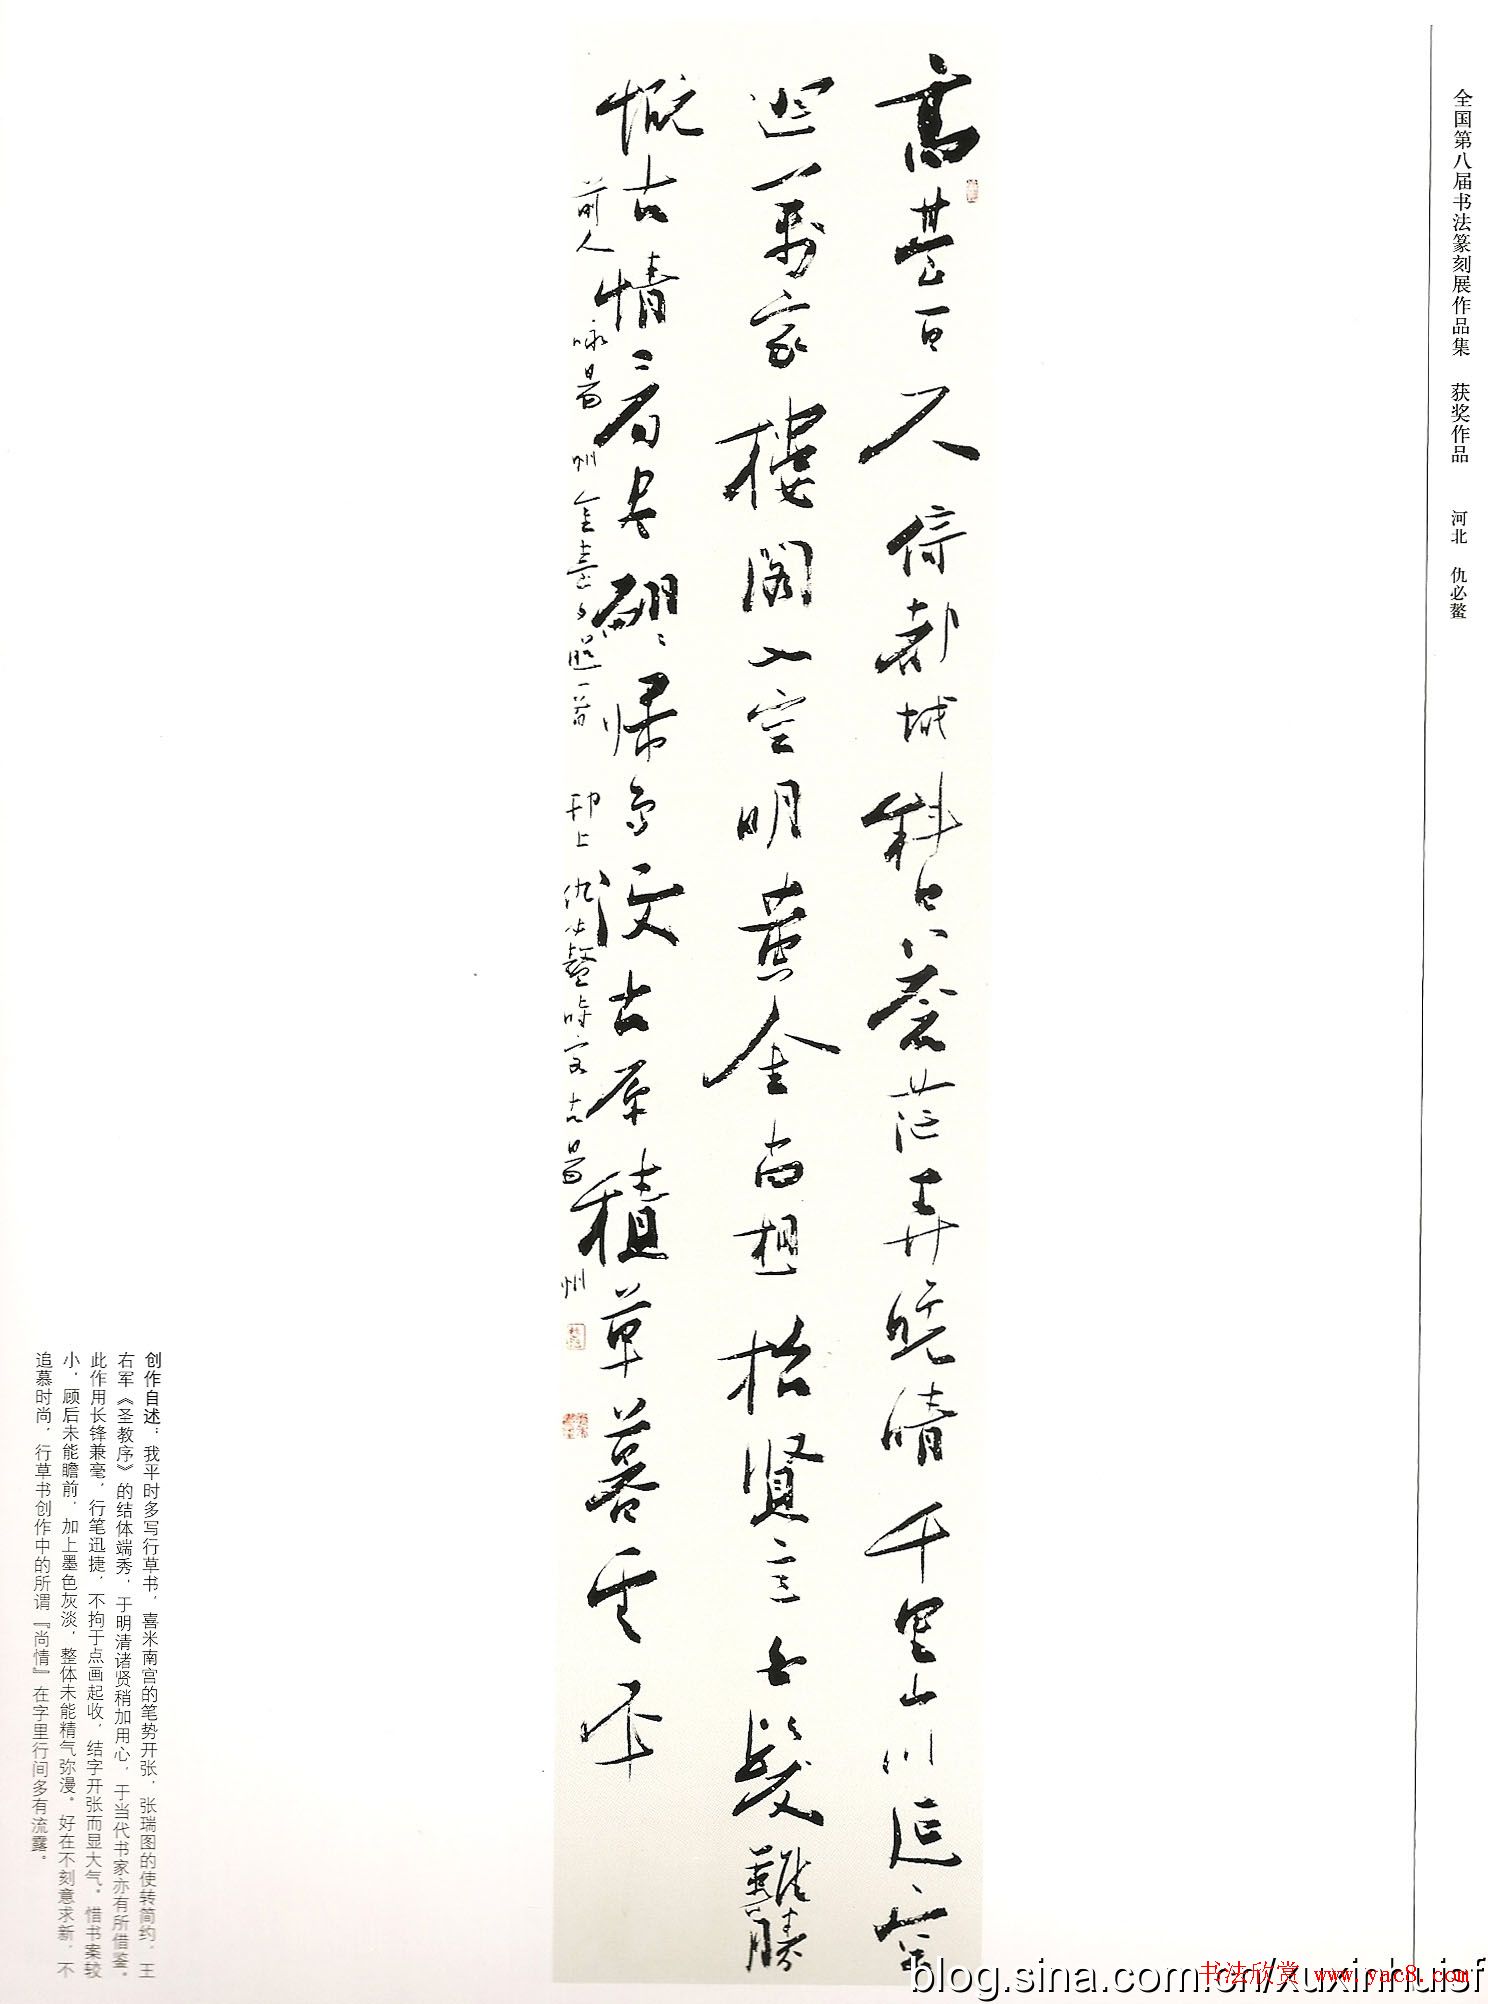 全国第八届书法篆刻展作品集 获奖作品 河北 仇必鳌
高臺百尺倚都城斜日蒼茫弄晚晴千里山川延
萬家樓閣入空明黄金尚想招賢意白髮難勝
慨古情看尽翩翩帰鸟没古原積草暮雲平
前人咏易州金臺夕照一首 邢上仇必鳌時客古易州
创作自述：我平时多写行草书，喜米南宫的笔势开张，张瑞图的使转简约，王
右军《圣教序》的结体端秀，于明清诸贤稍加用心，于当代书家亦有所借鉴。
此作用长锋兼毫，行笔迅捷，不拘于点画起收，结字开张而显大气。惜书案较
小，顾后未能瞻前，加上墨色灰淡，整体未能精气弥漫。好在不刻意求新，不
追慕时尚，行草书创作中的所谓『尚情』在字里行间多有流露。
blog.sina.com.cn/xuxinhuisf
书法欣赏 www.yac8.com